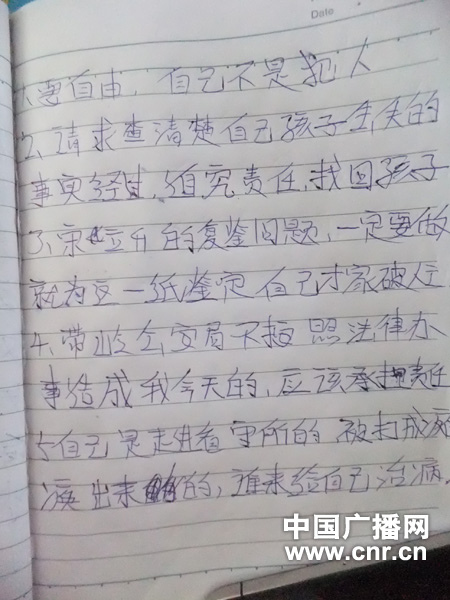 Date
1、要自由，自己不是犯人
2、请求查清楚自己孩子丢失的
事实经过，追究责任，找回孩子
3、宋立升的复鉴问题，一定要做
就为这一纸鉴定自己才家破人亡
4、带岭公安局不按照法律办
事造成我今天的，应该承担责任
5自己是走进看守所的 被打成
出来的，谁来给自己治病.
中国广播网
www.cnr.cn